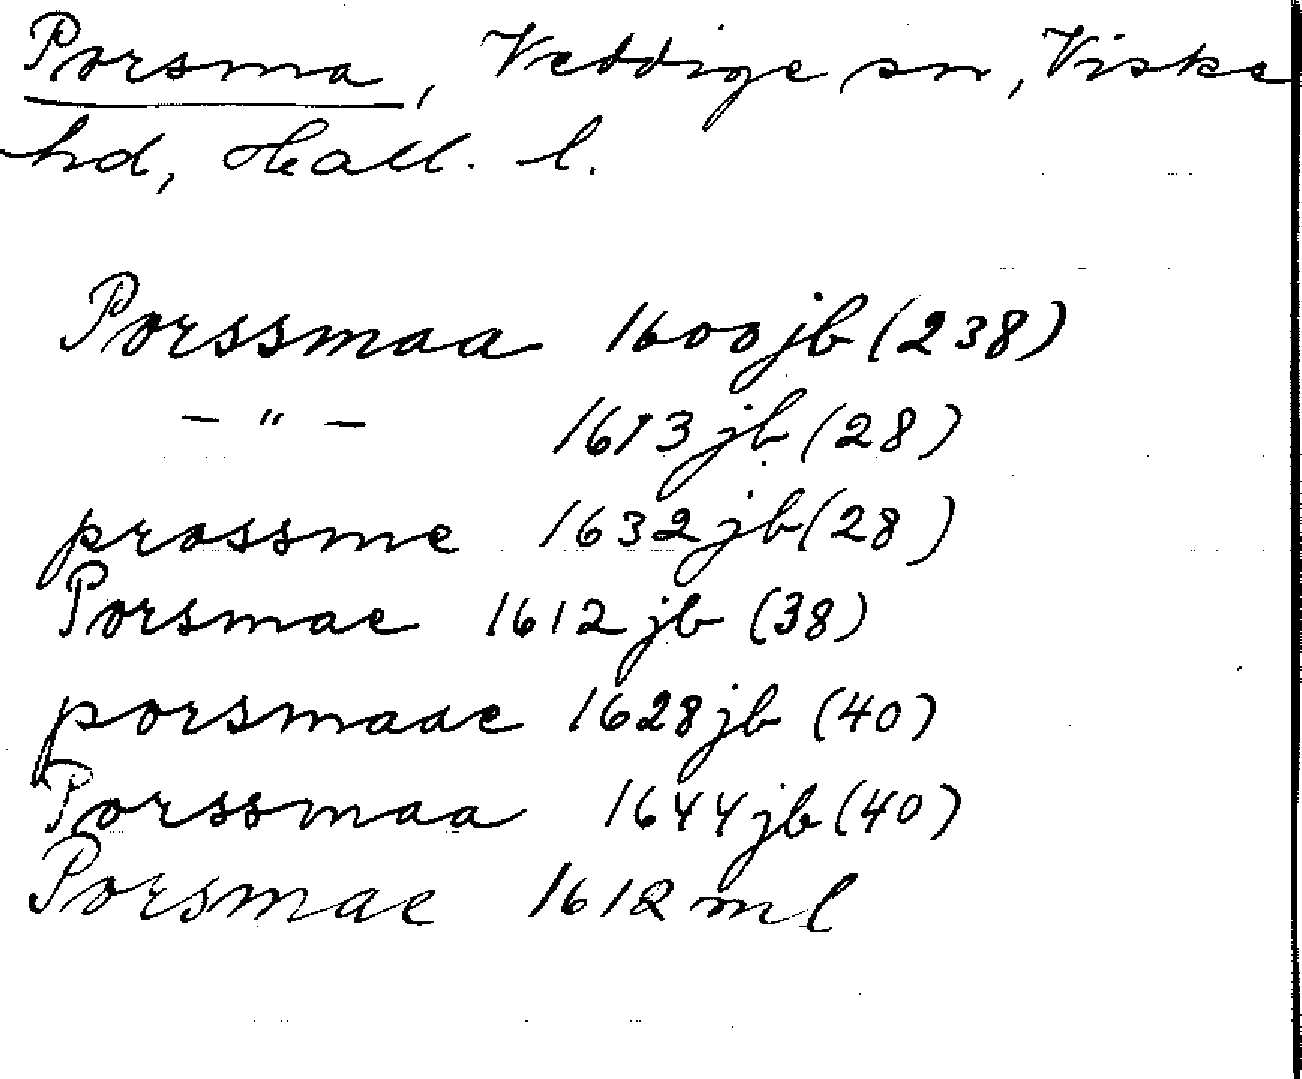 Porsma, Veddige sn, Viske
hd, Hall. l.
Porssmaa 1600 jb (238)
- " - 1613 jb (28)
prossme 1632 jb (28)
Porsmae 1612 jb (38)
porsmaae 1628 jb (40)
Porssmaa 1644 jb (40)
Porsmae 1612 ml